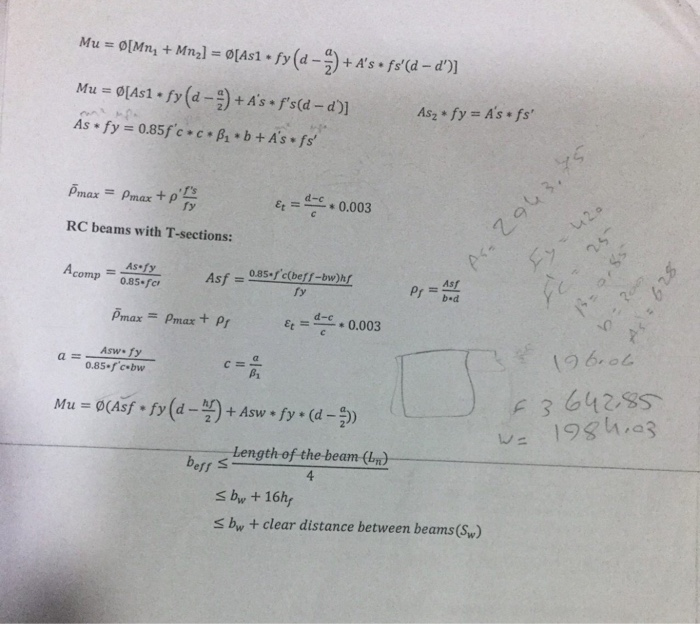 Mu = Ø[Mn₁ + Mn₂] = Ø[As1 * fy(d − a/2) + A's * fs'(d − d')]
Mu = Ø[As1 * fy(d − a/2) + A's * f's(d − d')]
As₂ * fy = A's * fs'
As * fy = 0.85f'c * c * β₁ * b + A's * fs'
ρ̄max = ρmax + ρ' f's/fy
εt = (d−c)/c * 0.003
RC beams with T-sections:
Acomp = As*fy/0.85*fc'
Asf = 0.85*f'c(beff−bw)hf/fy
ρf = Asf/b*d
ρ̄max = ρmax + ρf
εt = (d−c)/c * 0.003
a = Asw*fy/0.85*f'c*bw
c = a/β₁
Mu = Ø(Asf * fy(d − hf/2) + Asw * fy * (d − a/2))
beff ≤ Length of the beam (Ln)/4
≤ bw + 16hf
≤ bw + clear distance between beams(Sw)
As = 2943.75
Fy = 420
F'c = 25
β = 0.85
As' = 628
196.06
F 3642.85
W = 1984.03